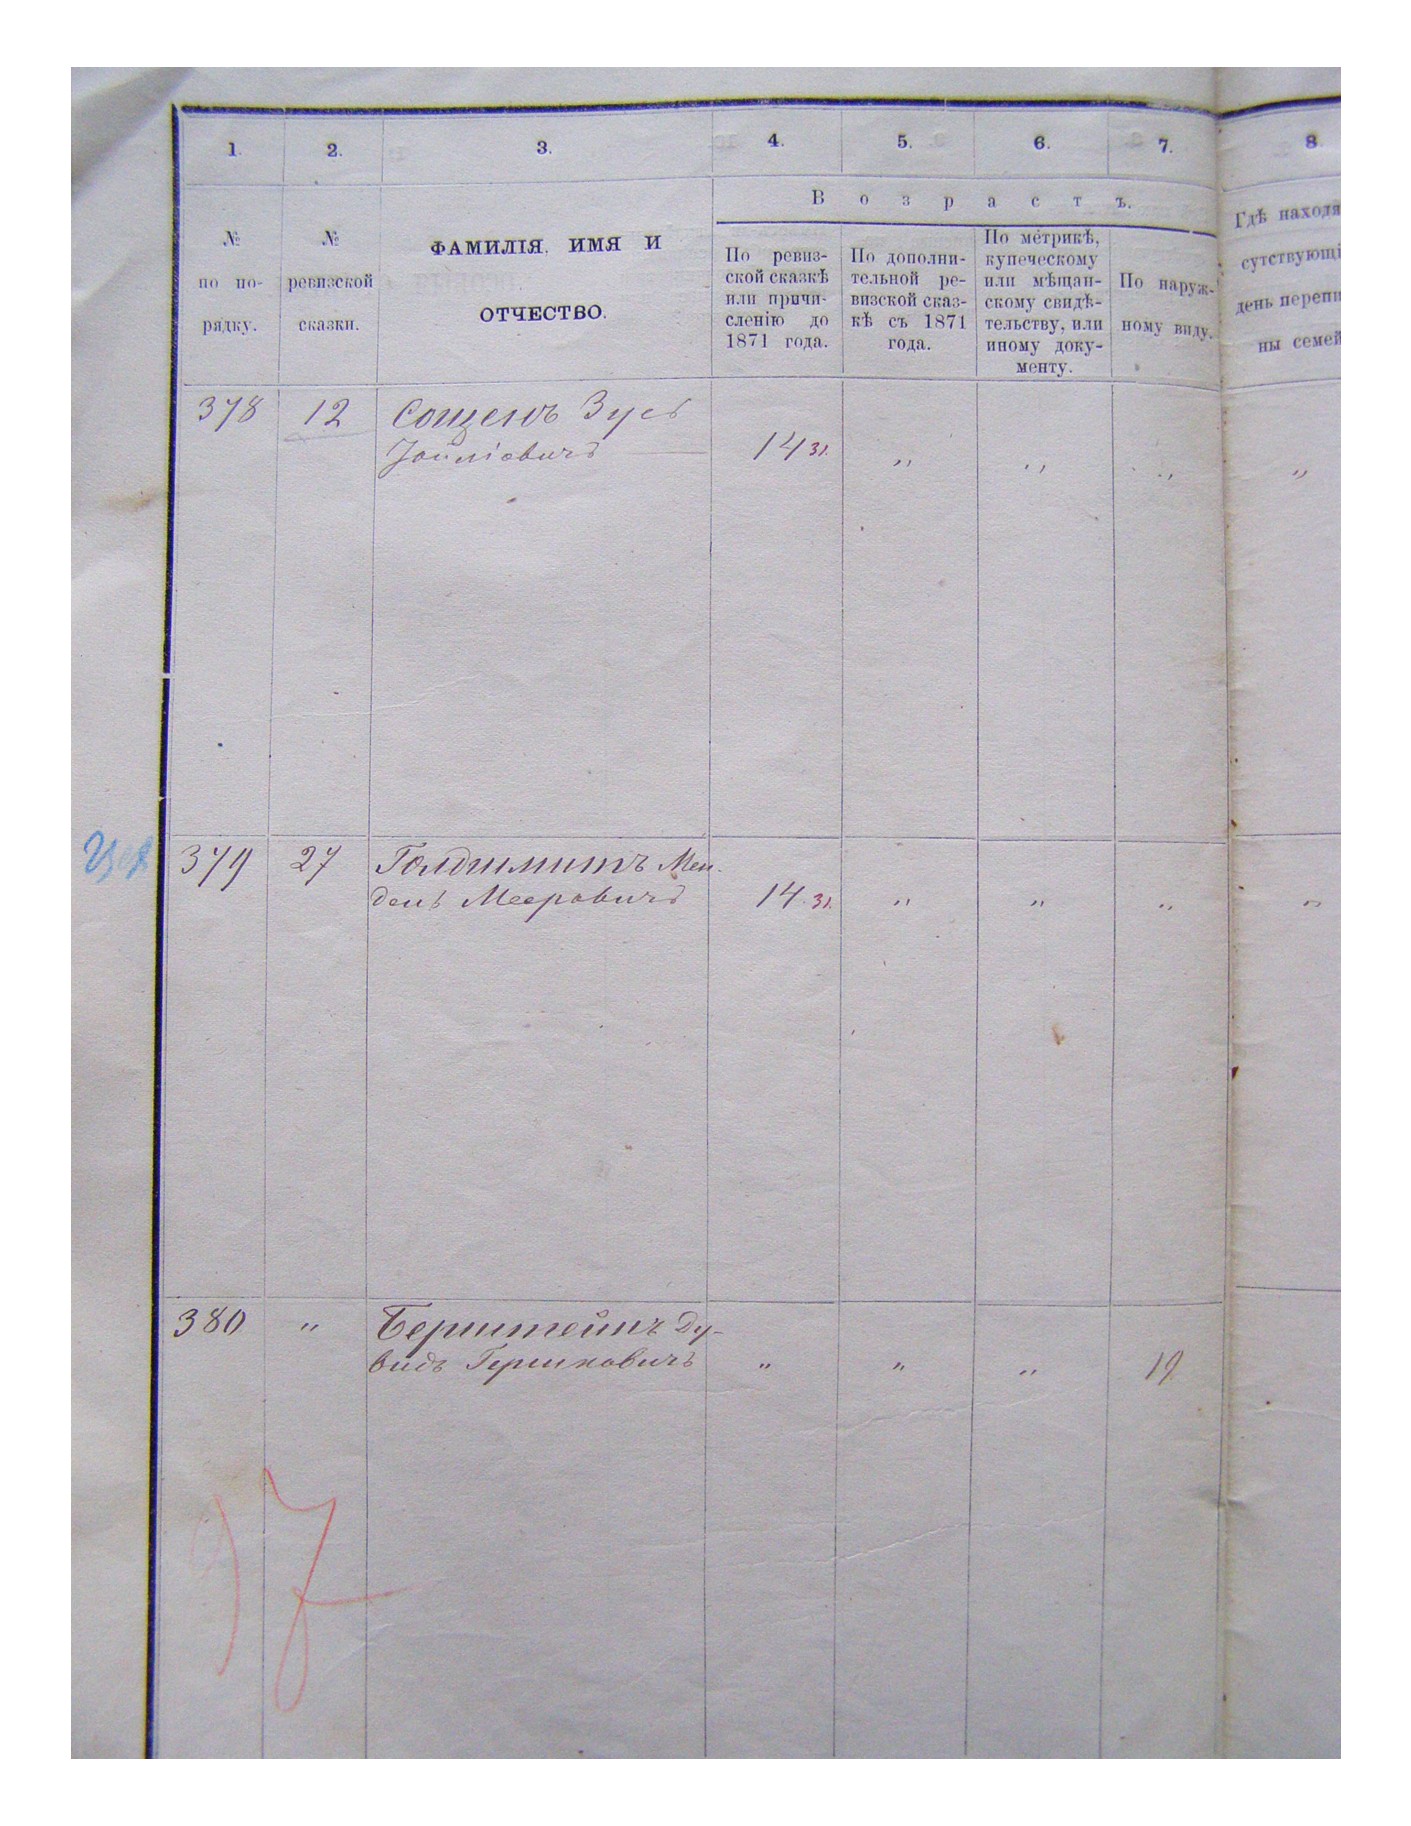 1. 2. 3. 4. 5. 6. 7. 8.
№
по по-
рядку.
№
ревизской
сказки.
ФАМИЛІЯ, ИМЯ И
ОТЧЕСТВО.
Возрастъ.
По ревиз-
ской сказкѣ
или причи-
сленію до
1871 года.
По дополни-
тельной ре-
визской сказ-
кѣ съ 1871
года.
По метрикѣ,
купеческому
или мѣщан-
скому свидѣ-
тельству, или
иному доку-
менту.
По наруж-
ному виду.
Гдѣ находя
сутствующі
день перепи
ны семей
378 12 Сощенъ Зусь
14 31. " " " "
Цех
379 27 Голдшмитъ Мен-
дель Мееровичъ 14 31. " " " "
380 " Бернштейнъ Ду-
видъ Гершковичъ " " " 19
97